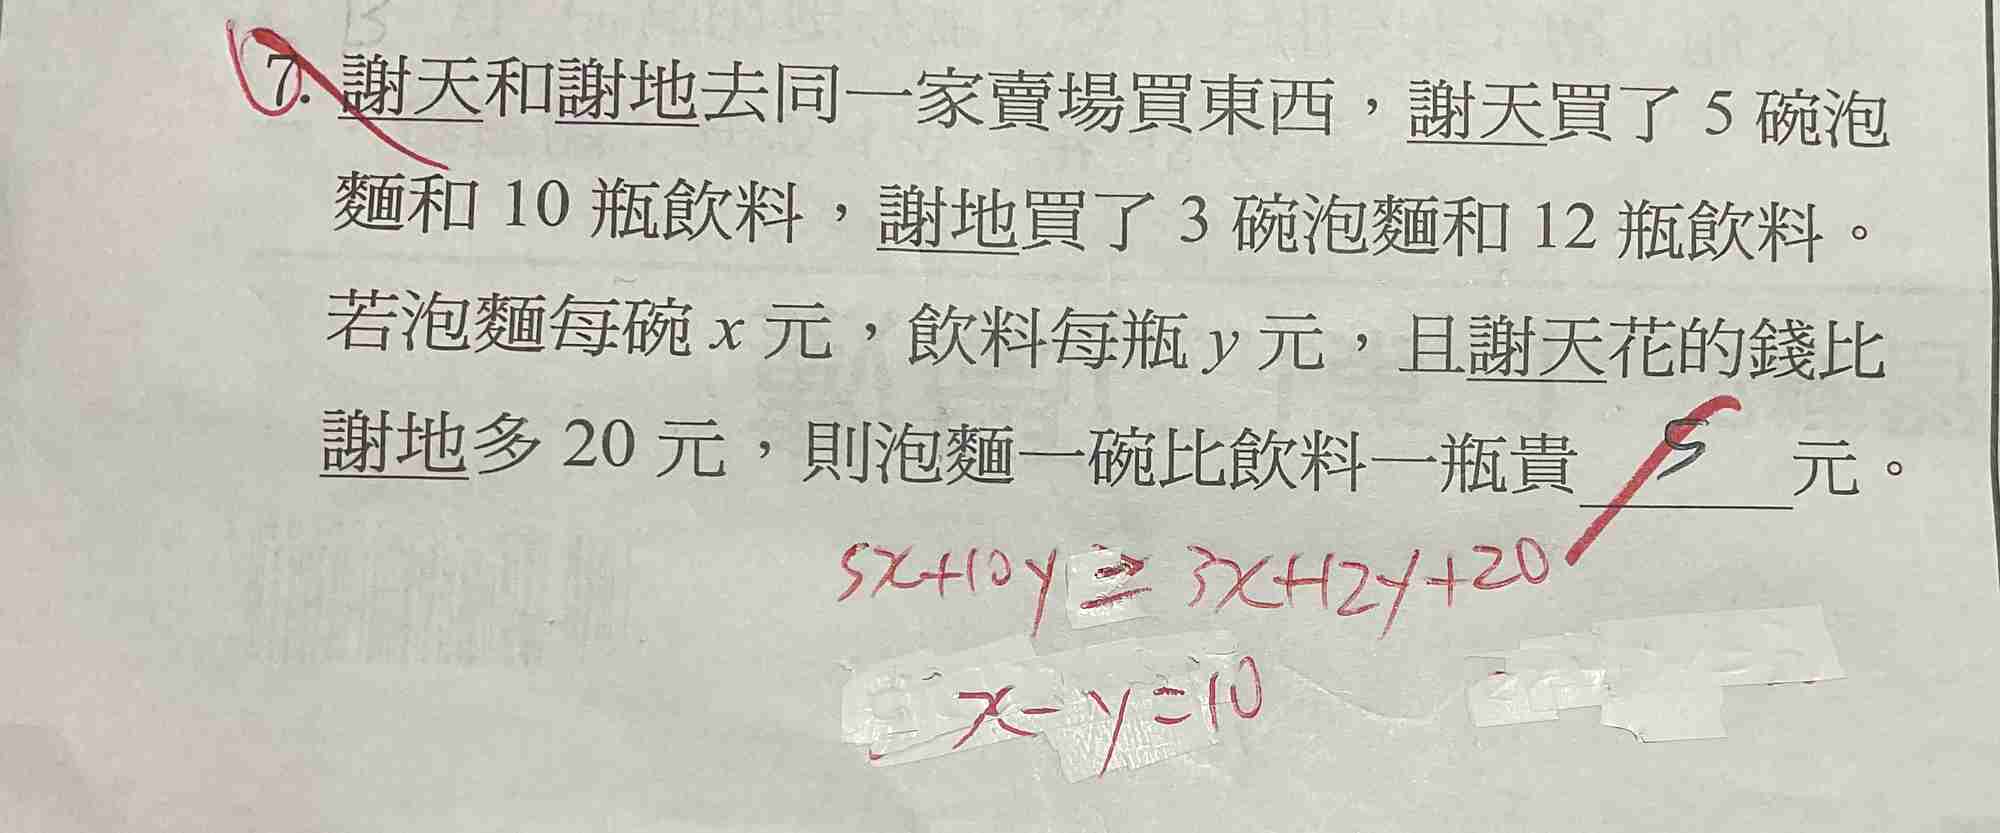 7. 謝天和謝地去同一家賣場買東西，謝天買了 5 碗泡
麵和 10 瓶飲料，謝地買了 3 碗泡麵和 12 瓶飲料。
若泡麵每碗 x 元，飲料每瓶 y 元，且謝天花的錢比
謝地多 20 元，則泡麵一碗比飲料一瓶貴 5 元。
5x+10y = 3x+12y+20
x-y=10